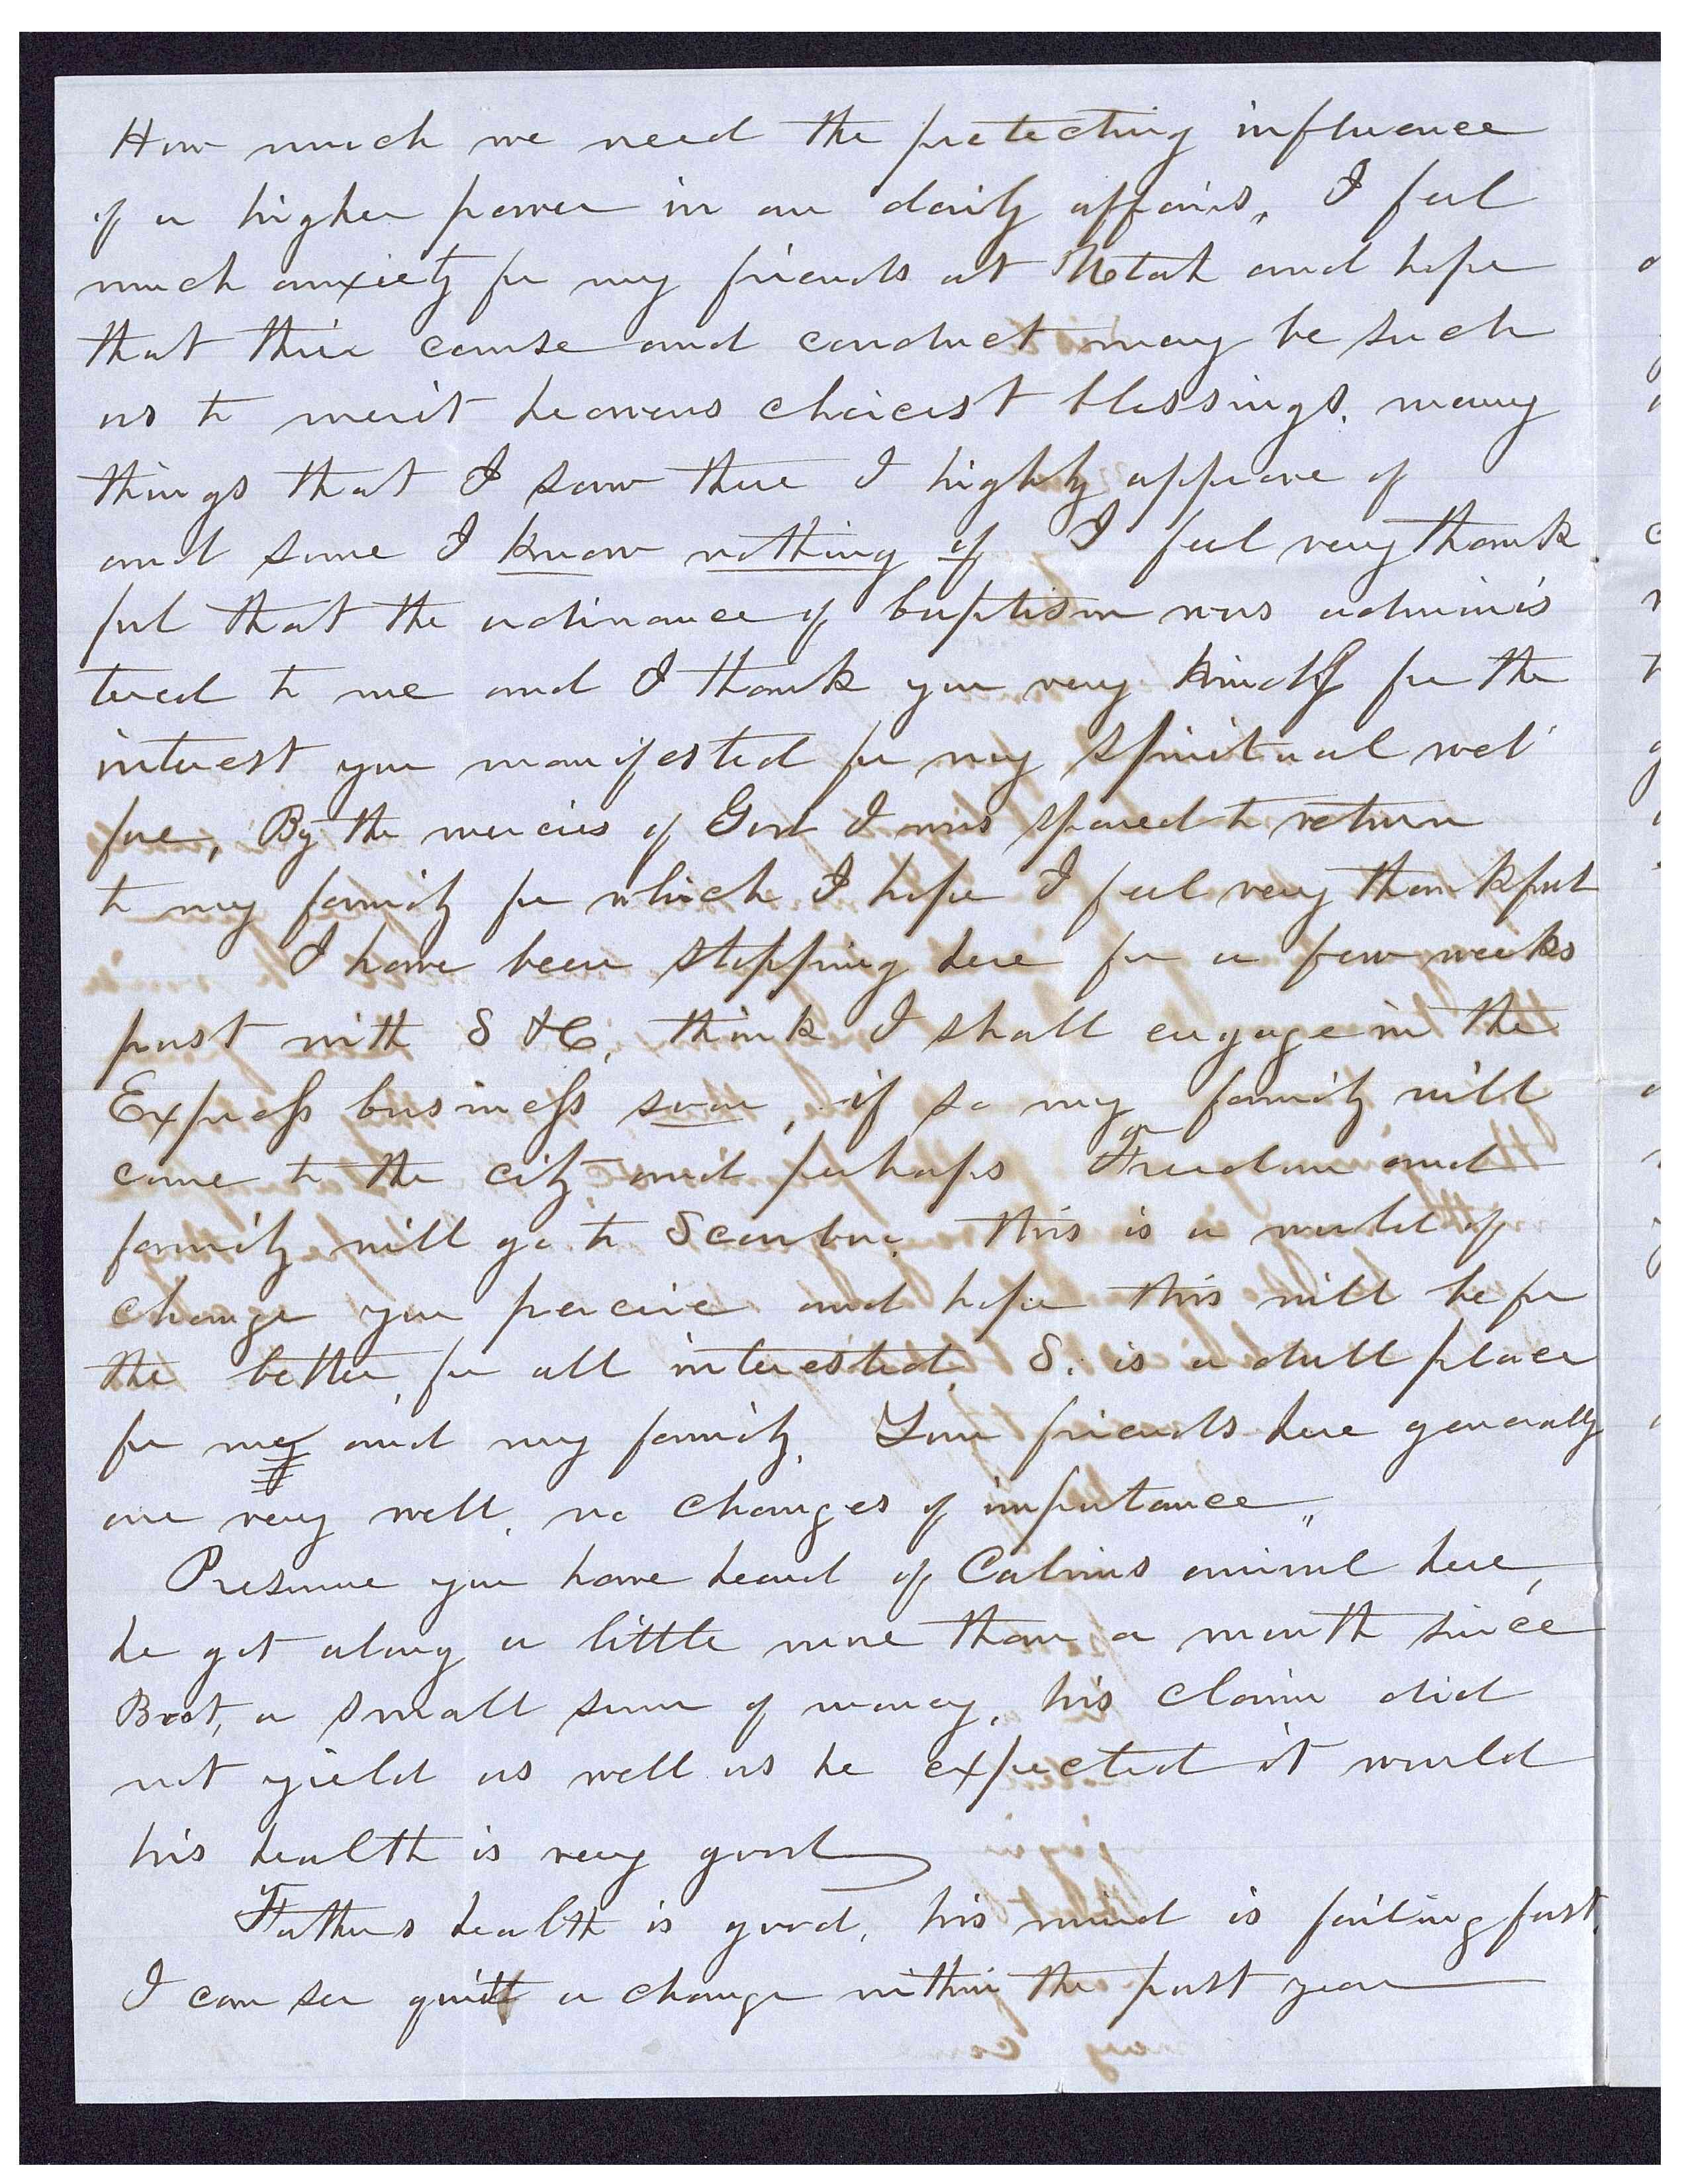 How much we need the protecting influence
of a higher power in our daily affairs,, I feel
much anxiety for my friends at Utah and hope
that their course and conduct may be such
as to merit heavens choicest blessings. many
things that I saw there I highly approve of
and some I know nothing of I feel very thank
ful that the ordinance of baptism was adminis
tered to me and I thank you very kindly for the
interest you manifested for my spiritual wel
fare, By the mercies of God I was spared to return
to my family for which I hope I feel very thankful
I have been stopping here for a few weeks
past with S & C, think I shall engage in the
Express business soon, if so my family will
come to the city and perhaps Freedom and
family will go to Scarboro. this is a world of
change you perceive and hope this will be for
the better, for all interested, S. is a dull place
for me and my family. Your friends here generally
are very well, no changes of importance,,
Presume you have heard of Calvins arrival here,
he got along a little more than a month since
Brot, a small sum of money, his claim did
not yield as well as he expected it would
his health is very good
Fathers health is good, his mind is failing fast.
I can see quite a change within the past year